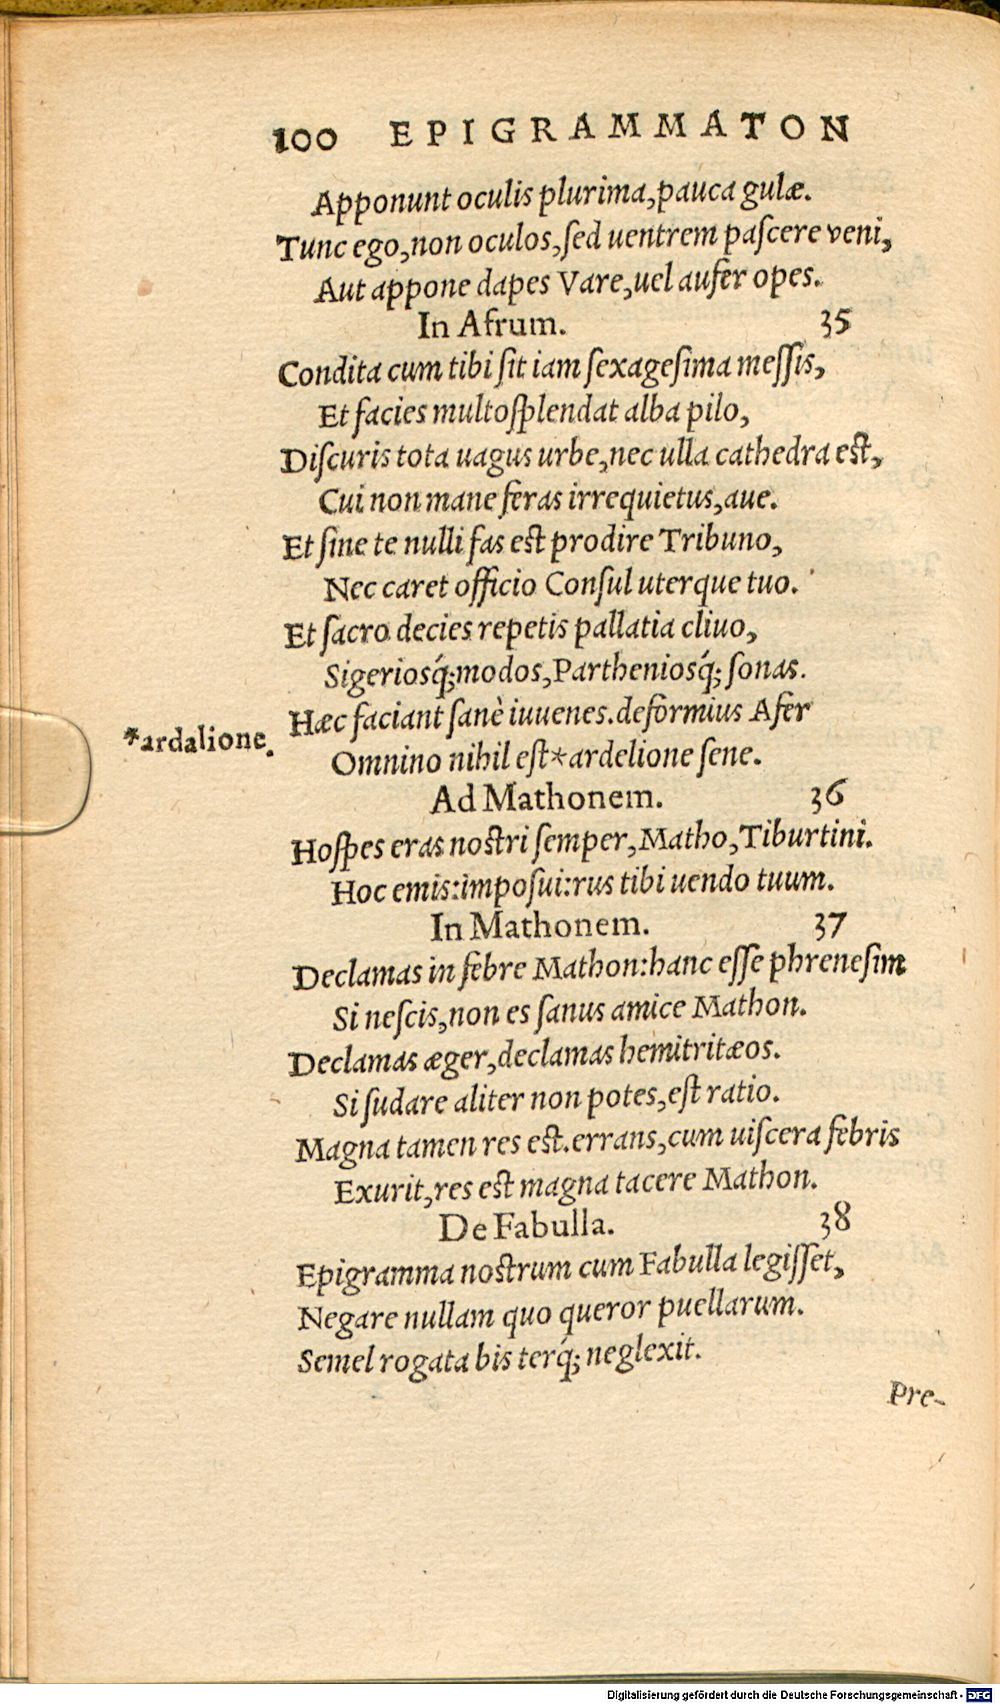 100 EPIGRAMMATON
Apponunt oculis plurima, pauca gulæ.
Tunc ego, non oculos, ſed uentrem paſcere veni,
Aut appone dapes Vare, uel aufer opes.
In Afrum. 35
Condita cum tibi ſit iam ſexageſima meſſis,
Et facies multo ſplendat alba pilo,
Diſcuris tota uagus urbe, nec ulla cathedra eſt,
Cui non mane feras irrequietus, aue.
Et ſine te nulli fas eſt prodire Tribuno,
Nec caret officio Conſul uterque tuo.
Et ſacro decies repetis pallatia cliuo,
Sigerioſq́; modos, Partheniosq́; ſonas.
Hæc faciant ſanè iuuenes. deformius Afer
*ardalione.
Omnino nihil eſt *ardelione ſene.
Ad Mathonem. 36
Hoſpes eras noſtri ſemper, Matho, Tiburtini.
Hoc emis: impoſui: rus tibi uendo tuum.
In Mathonem. 37
Declamas in febre Mathon: hanc eſſe phreneſim
Si neſcis, non es ſanus amice Mathon.
Declamas æger, declamas hemitritæos.
Si ſudare aliter non potes, eſt ratio.
Magna tamen res eſt. errans, cum uiſcera febris
Exurit, res eſt magna tacere Mathon.
De Fabulla. 38
Epigramma noſtrum cum Fabulla legiſſet,
Negare nullam quo queror puellarum.
Semel rogata bis terq́; neglexit.
Pre-
Digitalisierung gefördert durch die Deutsche Forschungsgemeinschaft - DFG